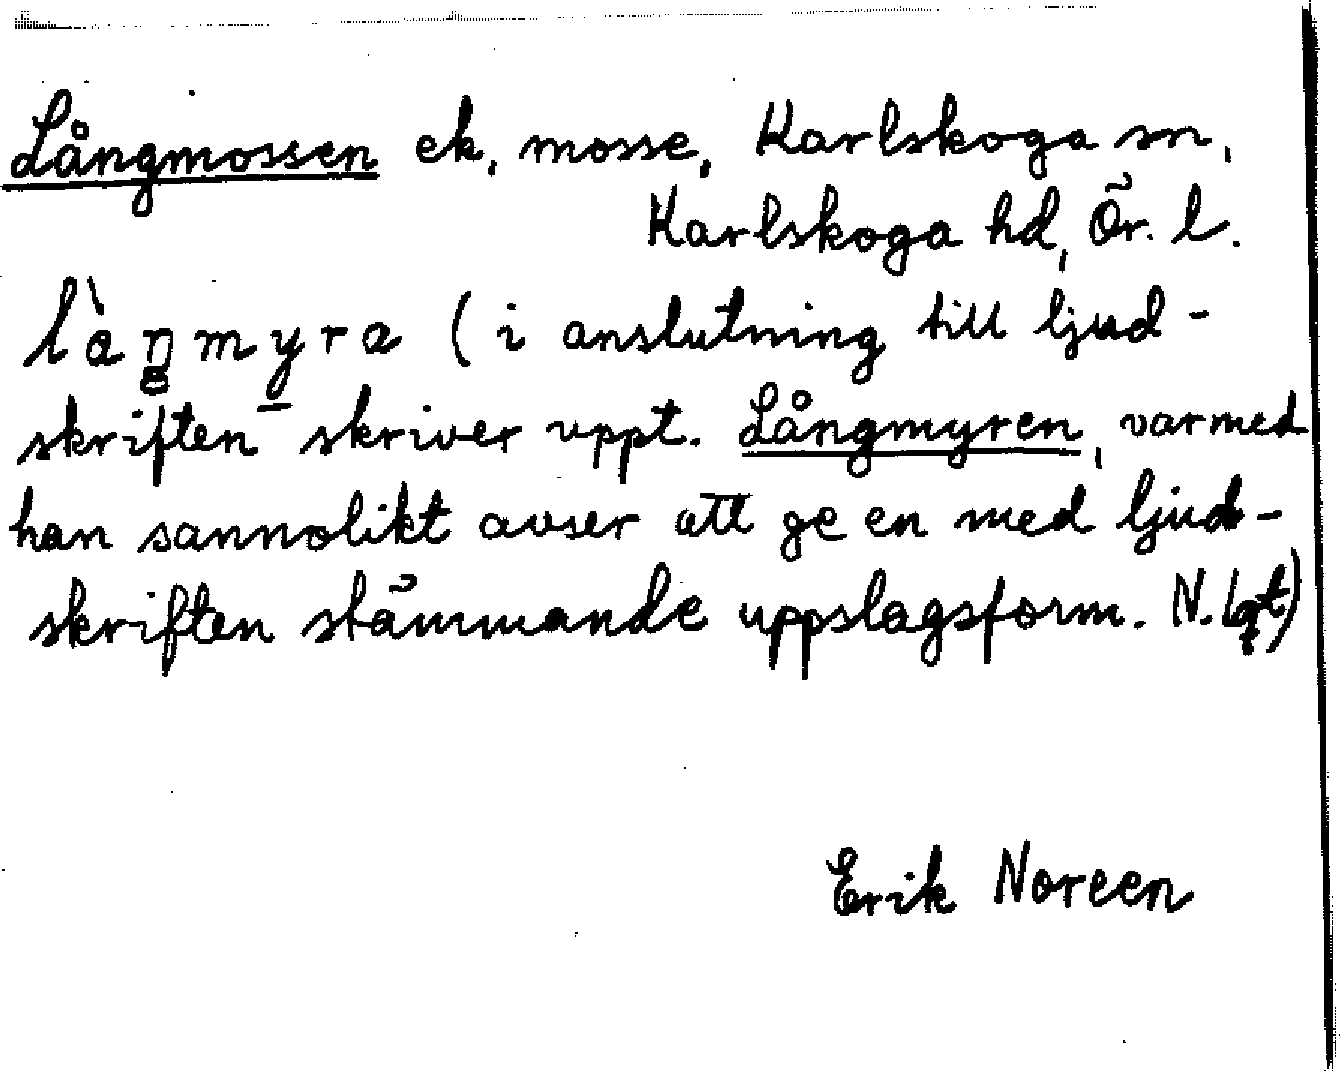 Långmossen ek, mosse, Karlskoga sn,
Karlskoga hd, Ör. l.
làŋmyra (i anslutning till ljud-
skriften skriver uppt. Långmyren, varmed
han sannolikt avser att ge en med ljud-
skriften stämmande uppslagsform. N. lgt)
Erik Noreen